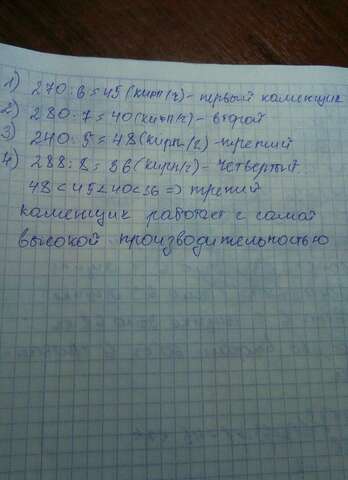 1) 270:6=45(кирп/ч)-первый каменщик
2) 280:7=40(кирп/ч)-второй
3) 240:5=48(кирп/ч)-третий
4) 288:8=36(кирп/ч)-четвертый.
48<45<40<36=>третий
каменщик работает с самой
высокой производительностью